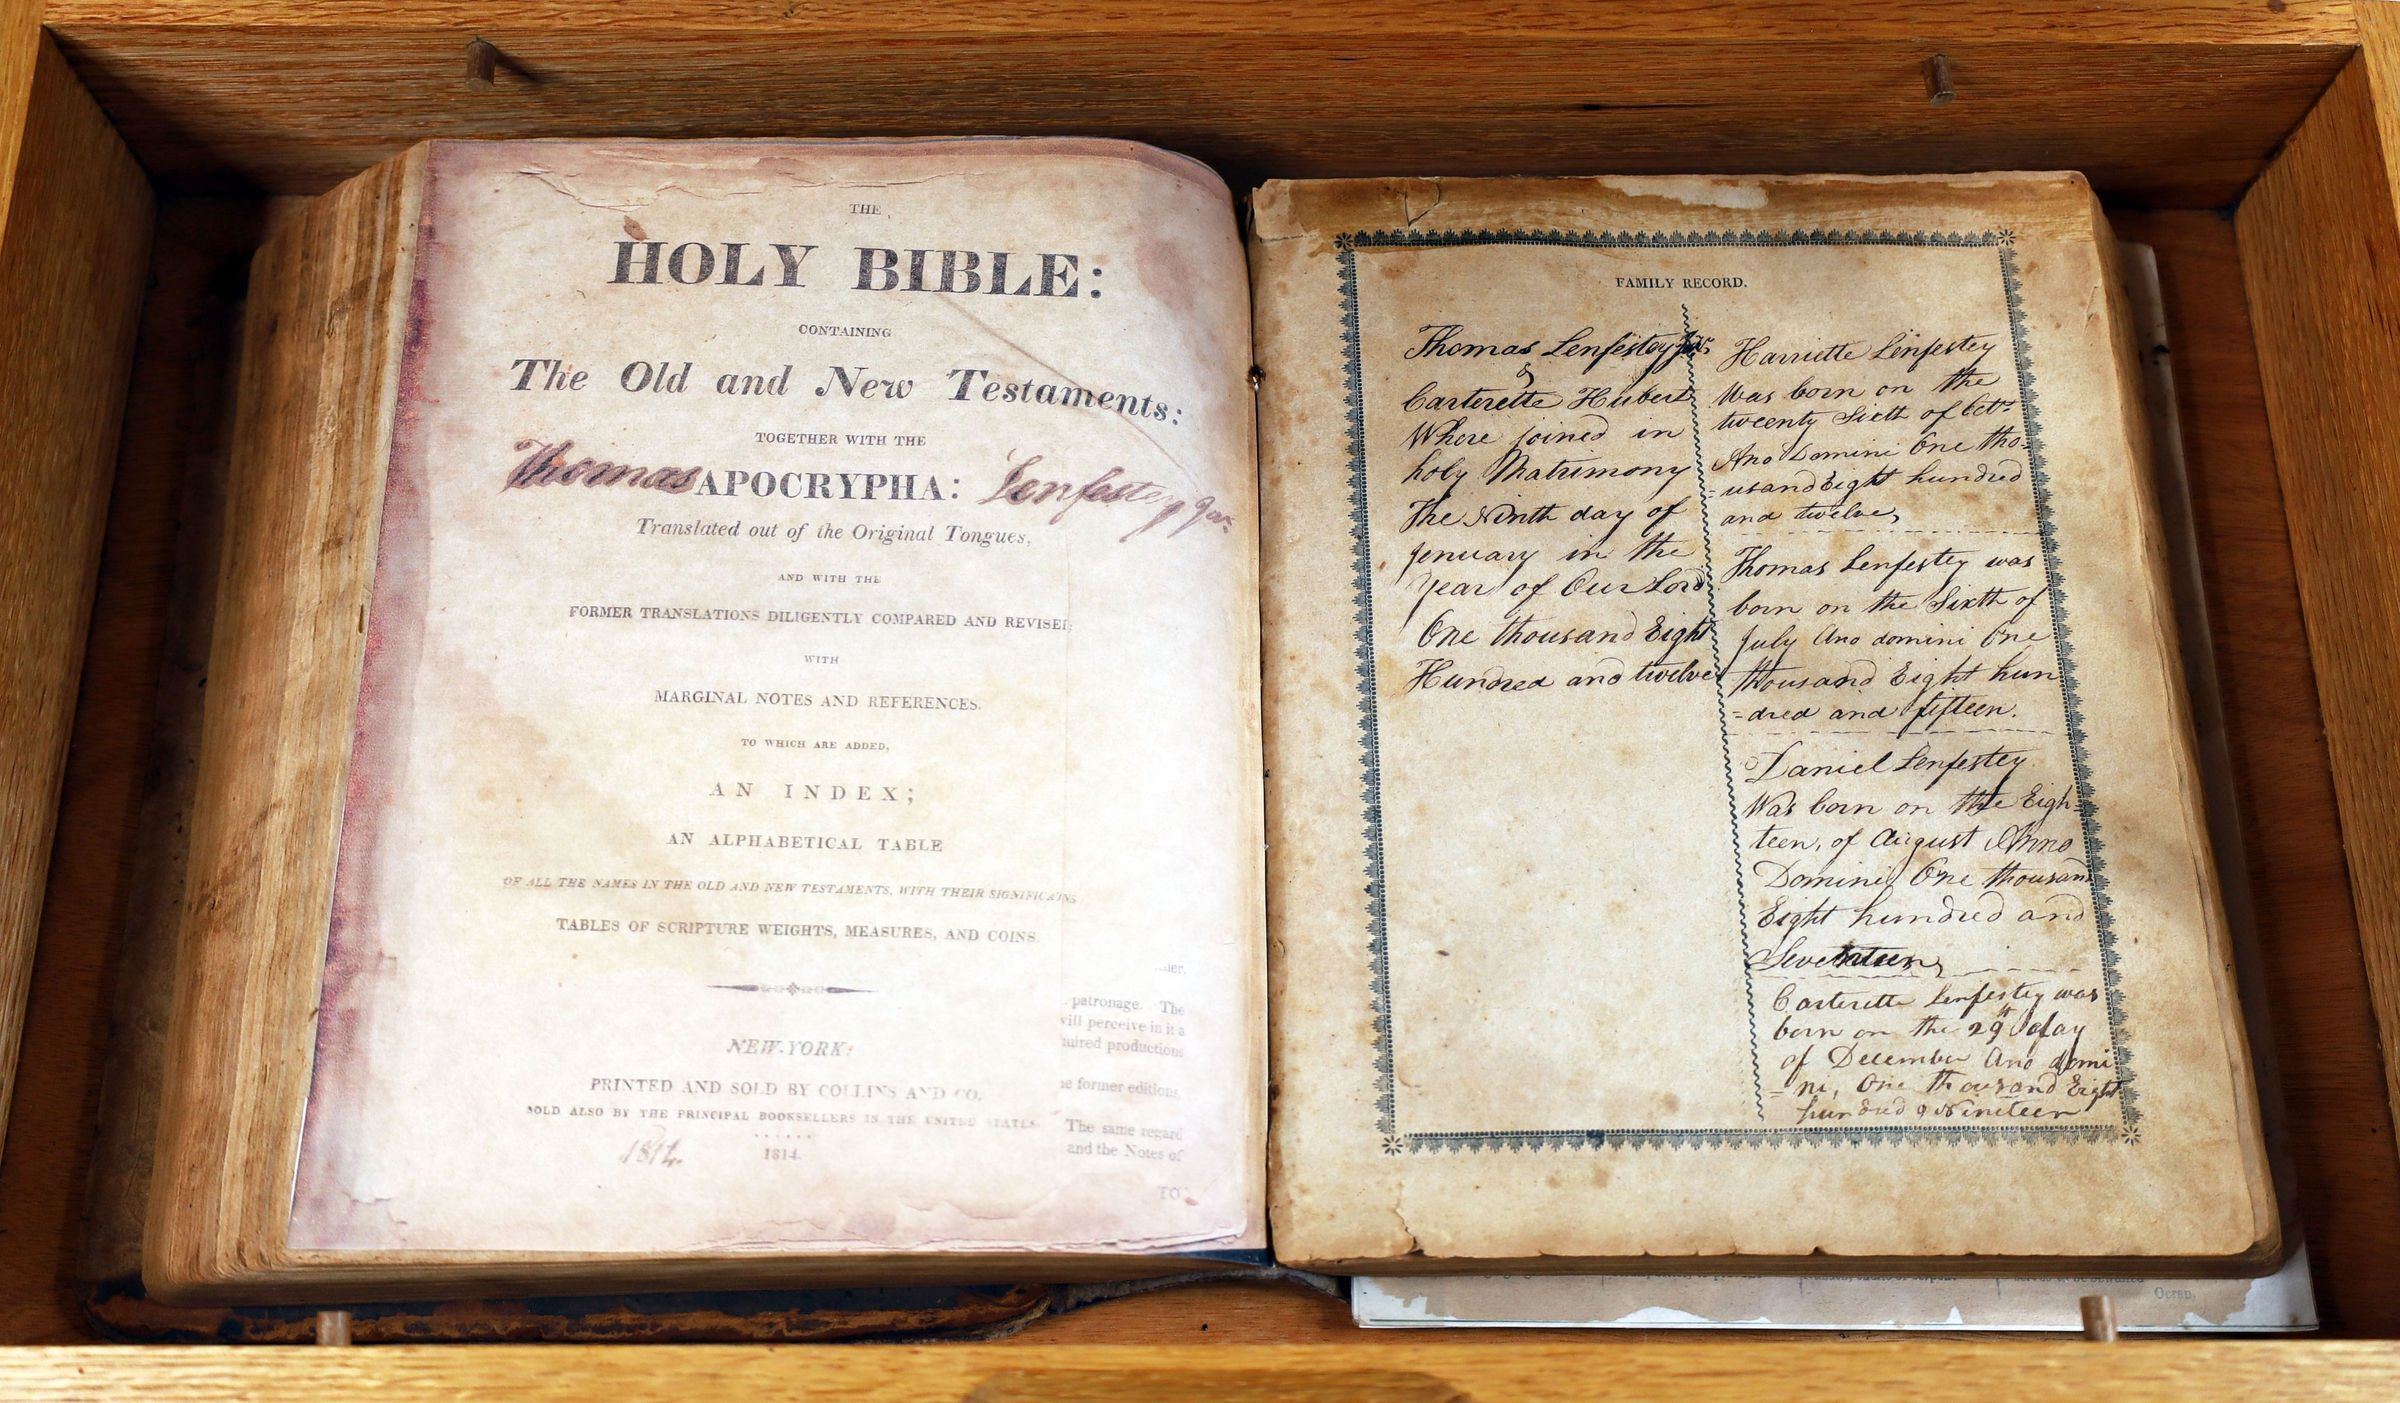 THE
HOLY BIBLE:
CONTAINING
The Old and New Testaments:
TOGETHER WITH THE
Thomas APOCRYPHA: Lenfestey Junr
Translated out of the Original Tongues,
AND WITH THE
FORMER TRANSLATIONS DILIGENTLY COMPARED AND REVISED;
WITH
MARGINAL NOTES AND REFERENCES.
TO WHICH ARE ADDED,
AN INDEX;
AN ALPHABETICAL TABLE
OF ALL THE NAMES IN THE OLD AND NEW TESTAMENTS, WITH THEIR SIGNIFICATIONS
TABLES OF SCRIPTURE WEIGHTS, MEASURES, AND COINS.
NEW-YORK:
PRINTED AND SOLD BY COLLINS AND CO.
SOLD ALSO BY THE PRINCIPAL BOOKSELLERS IN THE UNITED STATES.
1814.
1814.
patronage. The
will perceive in it a
productions
former editions,
The same regard
and the Notes of
TO
FAMILY RECORD.
Thomas Lenfestey Junr
&
Carterette Hubert
Where joined in
holy Matrimony
The Ninth day of
Jenuary in the
Year of Our Lord
One thousand Eight
Hundred and twelve
Harriette Lenfestey
Was born on the
twenty Sixth of Octr
Ano Domini One tho-
=usand Eight hundred
and twelve,
Thomas Lenfestey was
born on the Sixth of
July Ano domini One
thousand Eight hun
=dred and fifteen.
Daniel Lenfestey
Was born on the Eigh=
teen, of August Anno
Domini One thousand
Eight hundred and
Seventeen,
Carterette Lenfestey was
born on the 29th day
of December Ano domi
=ni, One thousand Eight
hundred & Nineteen